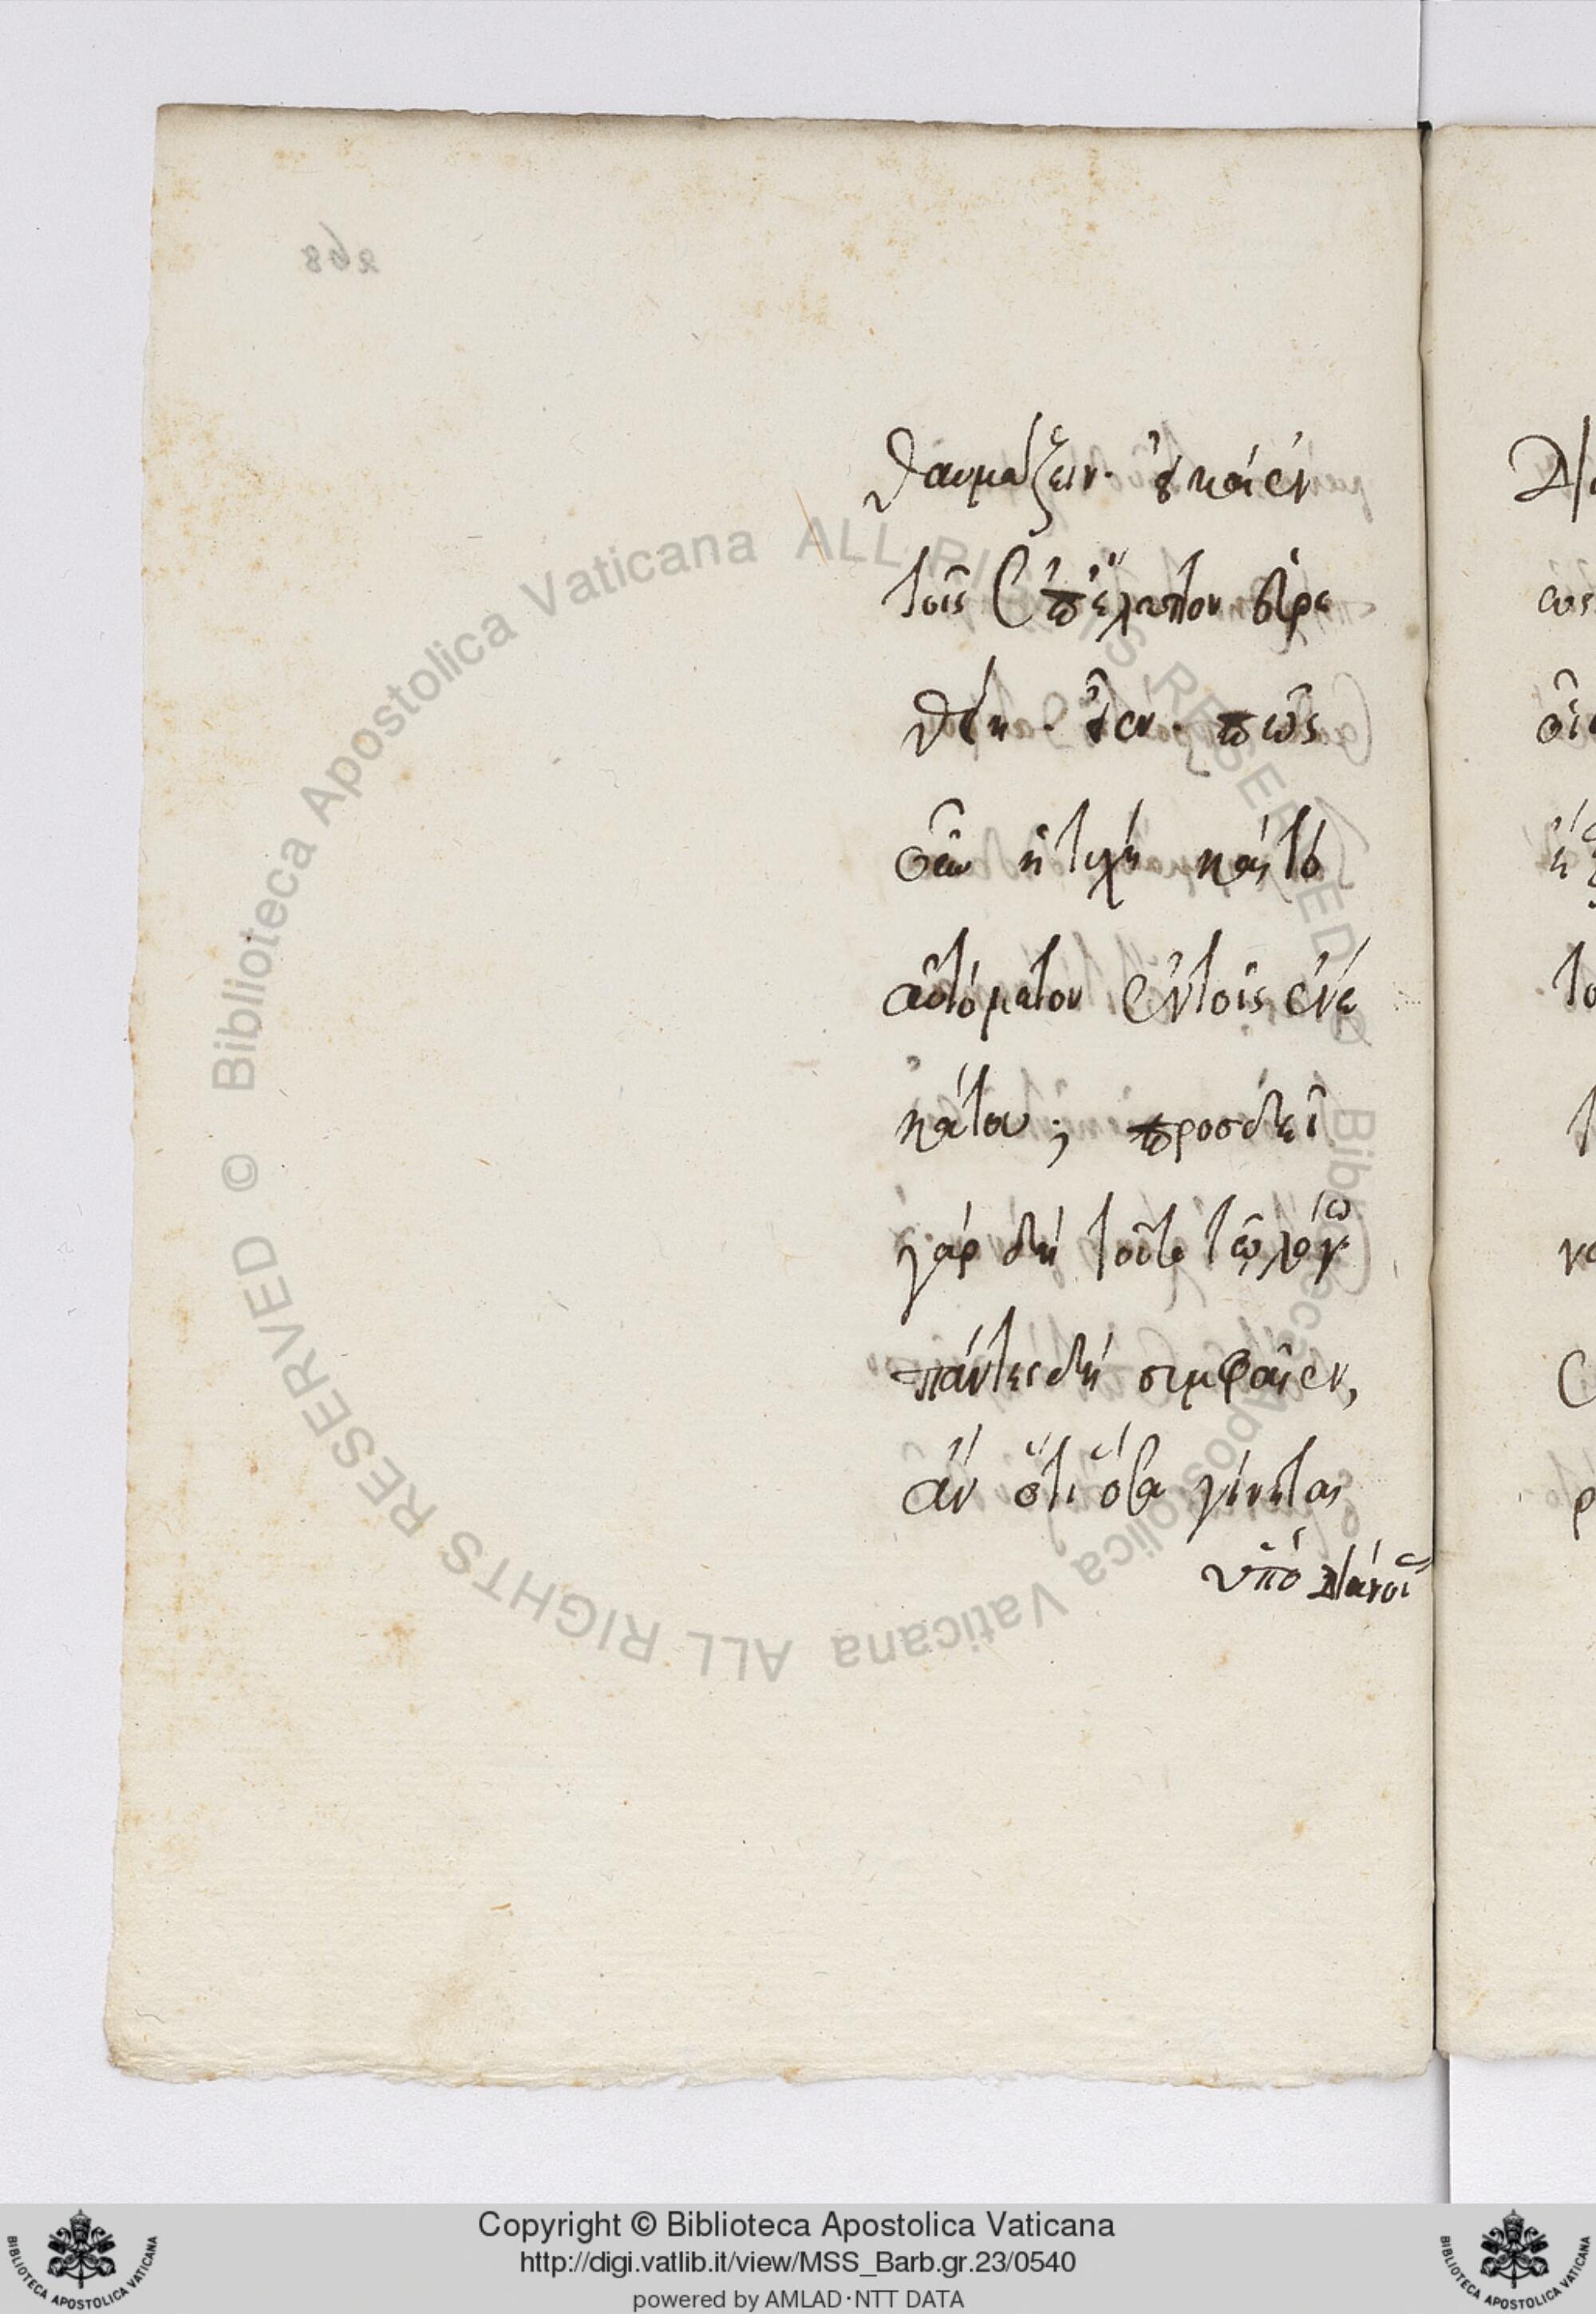 268
θαυμάζειν. ὃ καὶ ἐν
τοῖς ἐπ' ἔλαττον εὑρε
θείη. ἐν. πῶς
οὖν ἡ τύχη καὶ τὸ
αὐτόματον ἐν τοῖς ἕνε
κάτου; προσδεῖ
γὰρ δὴ τοῦτο τῷ λόγῳ
πάντες δὴ συμφαῖεν,
ἂν ὅτι ὅσα γίνεται
ὑπὸ διανοί
Biblioteca Apostolica Vaticana ALL RIGHTS RESERVED © Biblioteca Apostolica Vaticana ALL RIGHTS RESERVED ©
Copyright © Biblioteca Apostolica Vaticana
http://digi.vatlib.it/view/MSS_Barb.gr.23/0540
powered by AMLAD·NTT DATA
BIBLIOTECA APOSTOLICA VATICANA
BIBLIOTECA APOSTOLICA VATICANA